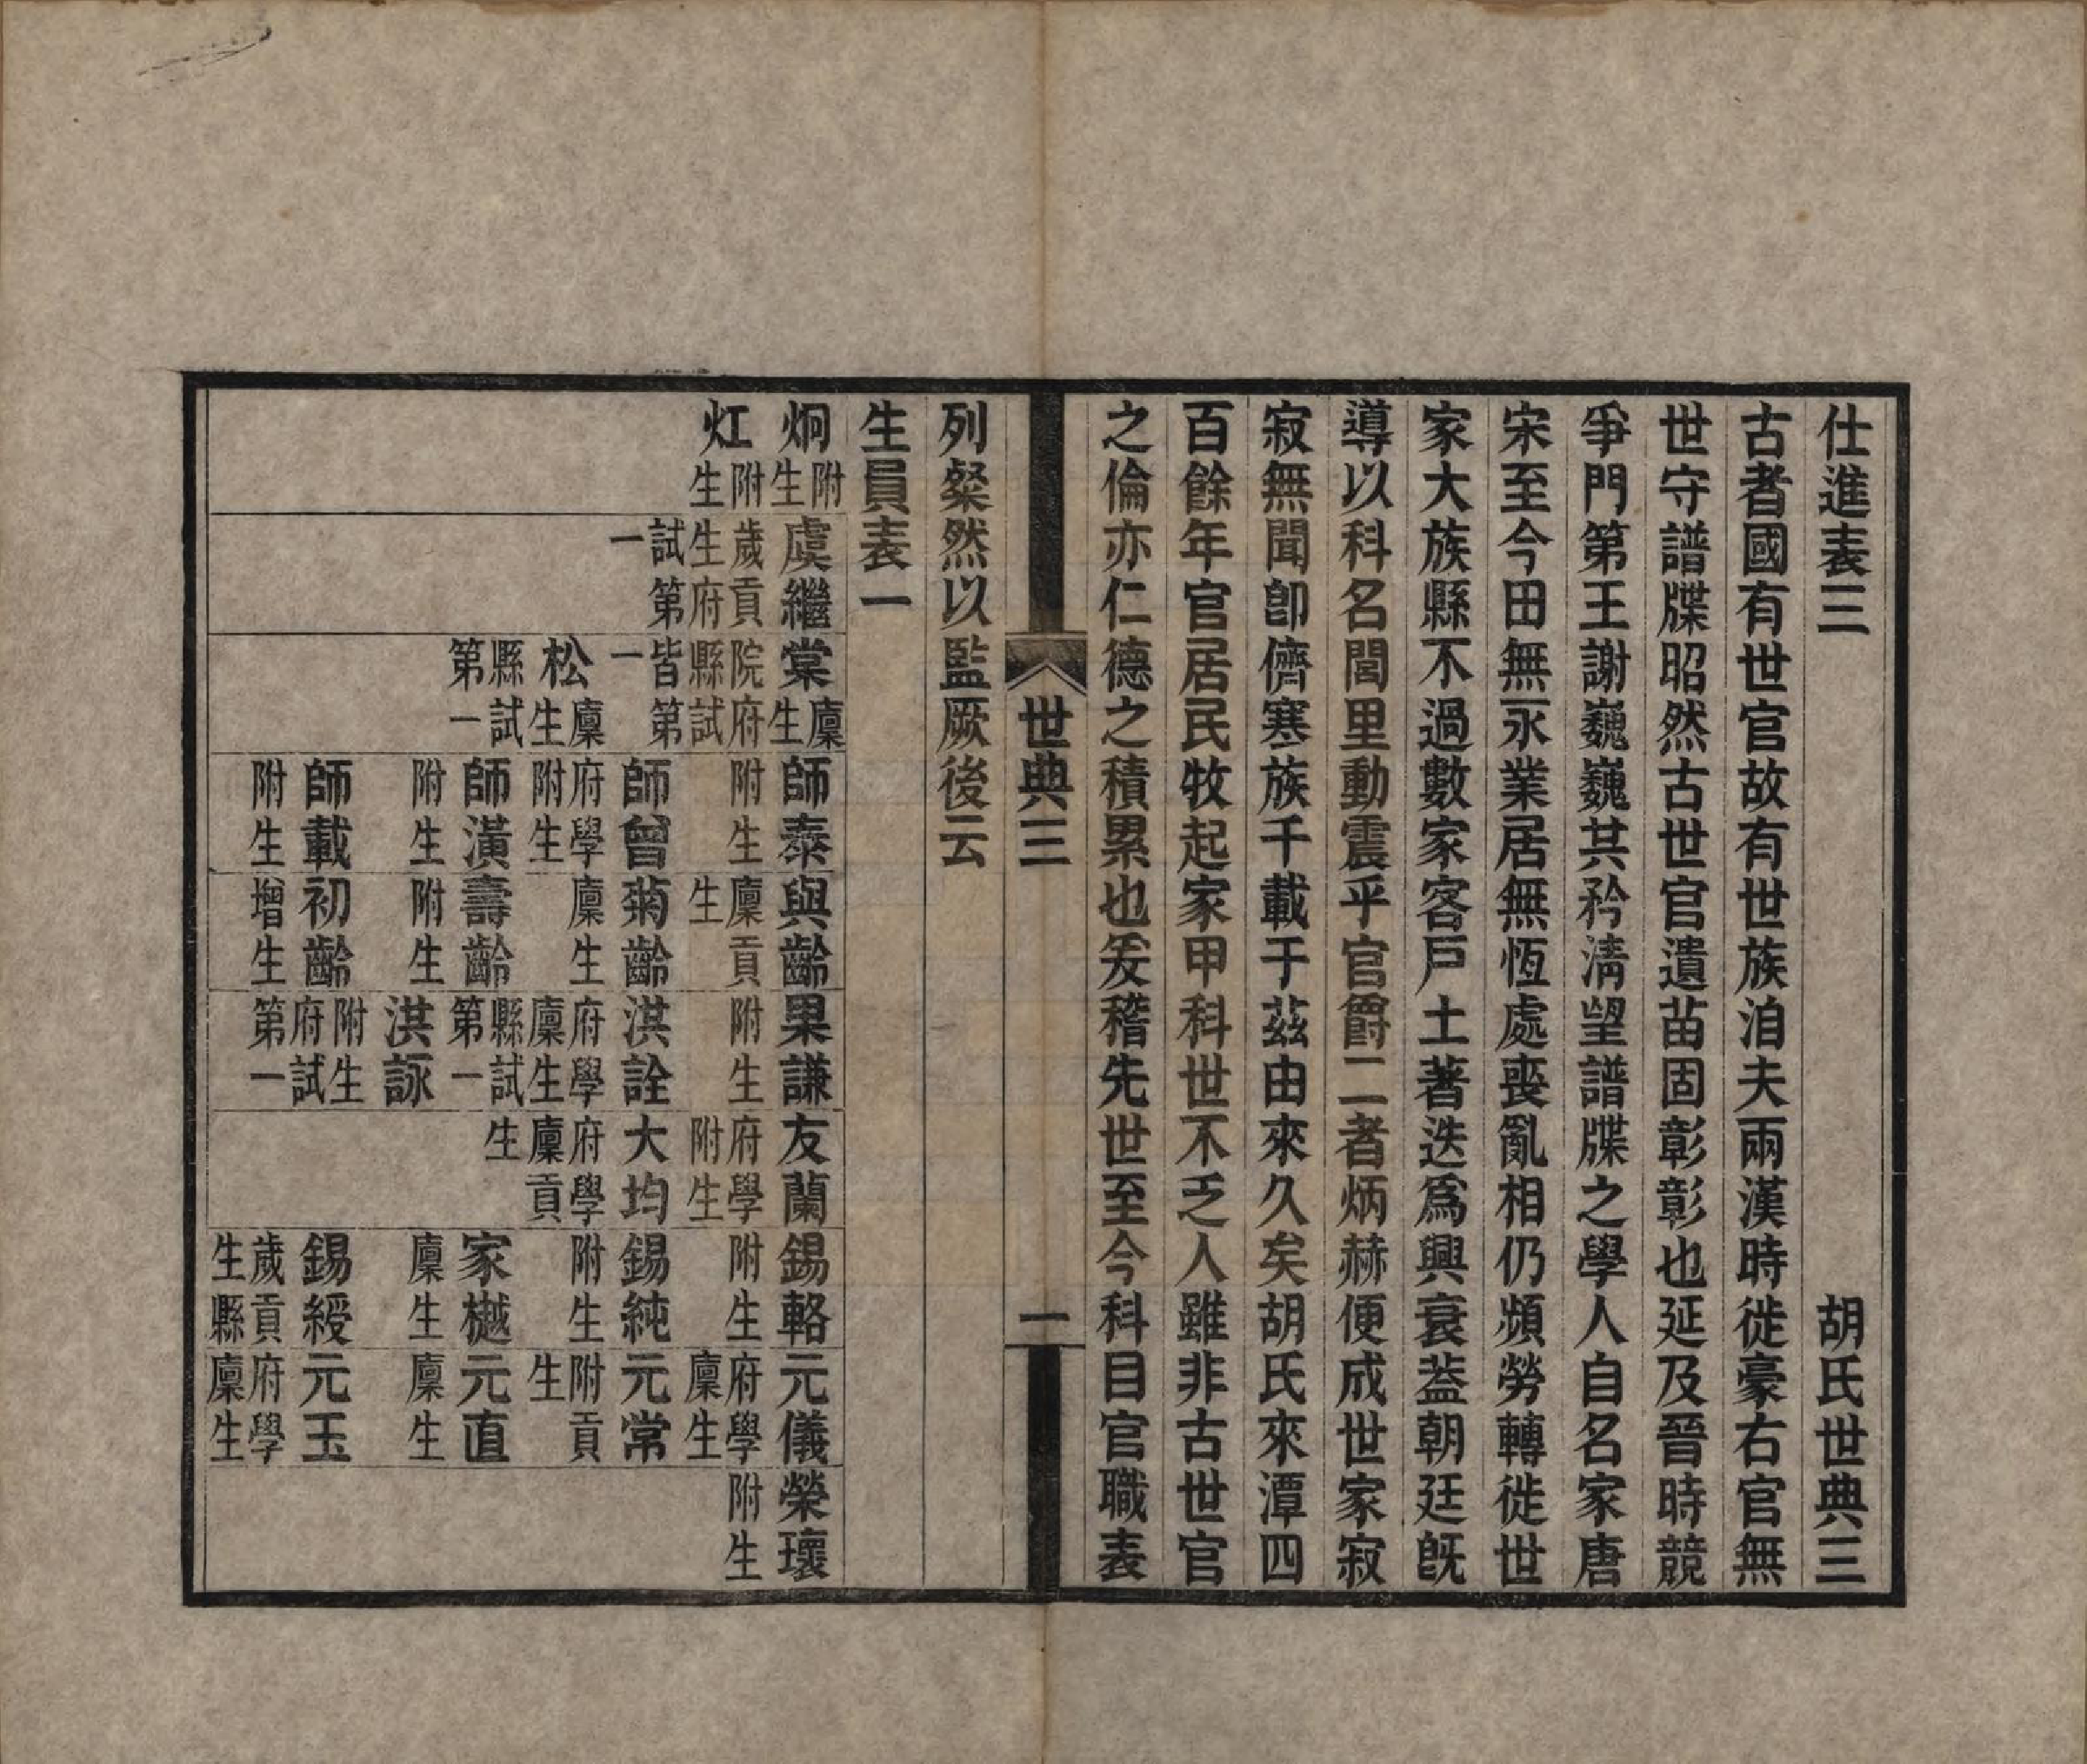 仕進表三　胡氏世典三
古者國有世官故有世族洎夫兩漢時徙豪右官無
世守譜牒昭然古世官遺苗固彰彰也延及晉時競
爭門第王謝巍巍其矜淸望譜牒之學人自名家唐
宋至今田無永業居無恆處喪亂相仍頻勞轉徙世
家大族縣不過數家客戶土著迭爲興衰蓋朝廷旣
導以科名閭里動震乎官爵二者炳赫便成世家寂
寂無聞卽儕寒族千載于茲由來久矣胡氏來潭四
百餘年官居民牧起家甲科世不乏人雖非古世官
之倫亦仁德之積累也爰稽先世至今科目官職表
世典三　一
列粲然以監厥後云
生員表一
炯附生
灴附生
虞繼歲貢生府試第一
棠廩生院府縣試皆第一
松廩生縣試第一
師泰附生
師曾府學附生
師潢附生
師載附生
與齡廩貢生
菊齡廩生
壽齡附生
初齡增生
果謙附生
洪詮府學廩生縣試第一
洪詠附生府試第一
友蘭府學附生
大均府學廩貢生
錫輅附生
錫純附生
家樾廩生
錫綬歲貢生縣
元儀府學廩生
元常附貢生
元直廩生
元玉府學廩生
榮瓌附生